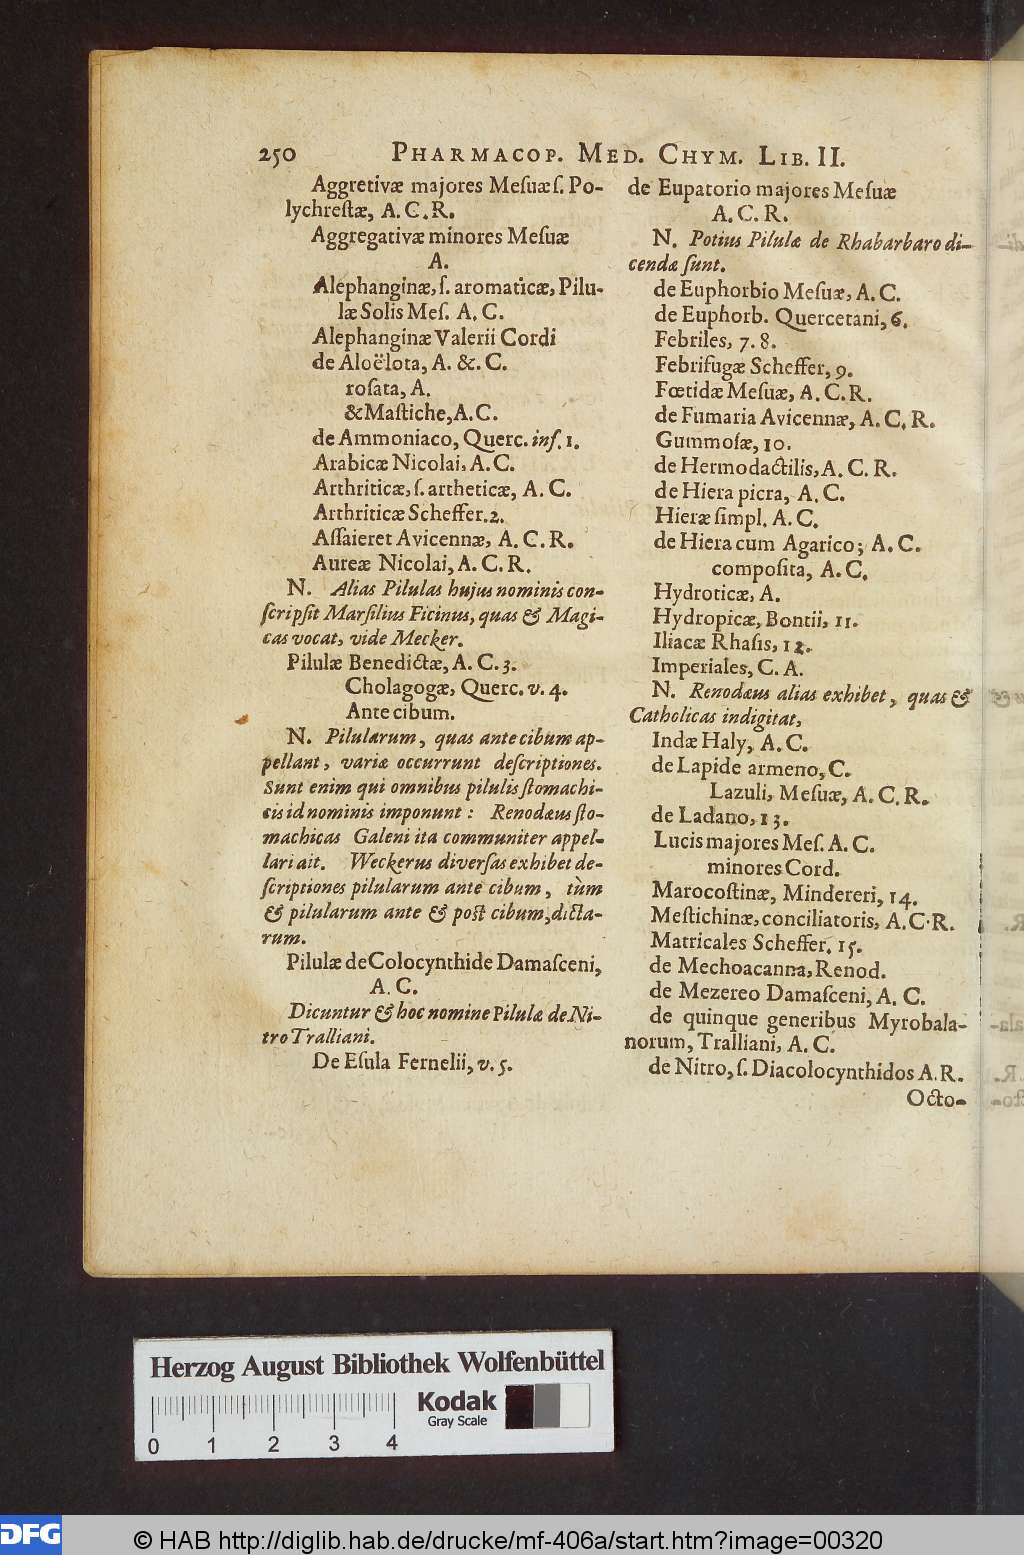 250 PHARMACOP. MED. CHYM. LIB. II.
Aggretivæ majores Meſuæ ſ. Po-
lychreſtæ, A. C. R.
Aggregativæ minores Meſuæ
A.
Alephanginæ, ſ. aromaticæ, Pilu-
læ Solis Meſ. A. C.
Alephanginæ Valerii Cordi
de Aloëlota, A. &. C.
roſata, A.
& Maſtiche, A. C.
de Ammoniaco, Querc. inf. 1.
Arabicæ Nicolai, A. C.
Arthriticæ, ſ. artheticæ, A. C.
Arthriticæ Scheffer. 2.
Aſſaieret Avicennæ, A. C. R.
Aureæ Nicolai, A. C. R.
N. Alias Pilulas hujus nominis con-
ſcripſit Marſilius Ficinus, quas & Magi-
cas vocat, vide Mecker.
Pilulæ Benedictæ, A. C. 3.
Cholagogæ, Querc. v. 4.
Ante cibum.
N. Pilularum, quas ante cibum ap-
pellant, variæ occurrunt deſcriptiones.
Sunt enim qui omnibus pilulis ſtomachi-
cis id nominis imponunt: Renodæus ſto-
machicas Galeni ita communiter appel-
lari ait. Weckerus diverſas exhibet de-
ſcriptiones pilularum ante cibum, tùm
& pilularum ante & poſt cibum, dicta-
rum.
Pilulæ de Colocynthide Damaſceni,
A. C.
Dicuntur & hoc nomine Pilulæ de Ni-
tro Tralliani.
De Eſula Fernelii, v. 5.
de Eupatorio majores Meſuæ
A. C. R.
N. Potius Pilulæ de Rhabarbaro di-
cendæ ſunt.
de Euphorbio Meſuæ, A. C.
de Euphorb. Quercetani, 6.
Febriles, 7. 8.
Febrifugæ Scheffer, 9.
Fœtidæ Meſuæ, A. C. R.
de Fumaria Avicennæ, A. C. R.
Gummoſæ, 10.
de Hermodactilis, A. C. R.
de Hiera picra, A. C.
Hieræ ſimpl. A. C.
de Hiera cum Agarico; A. C.
compoſita, A. C.
Hydroticæ, A.
Hydropicæ, Bontii, 11.
Iliacæ Rhaſis, 12.
Imperiales, C. A.
N. Renodæus alias exhibet, quas &
Catholicas indigitat,
Indæ Haly, A. C.
de Lapide armeno, C.
Lazuli, Meſuæ, A. C. R.
de Ladano, 13.
Lucis majores Meſ. A. C.
minores Cord.
Marocoſtinæ, Mindereri, 14.
Meſtichinæ, conciliatoris, A. C. R.
Matricales Scheffer. 15.
de Mechoacanna, Renod.
de Mezereo Damaſceni, A. C.
de quinque generibus Myrobala-
norum, Tralliani, A. C.
de Nitro, ſ. Diacolocynthidos A. R.
Octo-
Herzog August Bibliothek Wolfenbüttel
Kodak
Gray Scale
0 1 2 3 4
DFG
© HAB http://diglib.hab.de/drucke/mf-406a/start.htm?image=00320